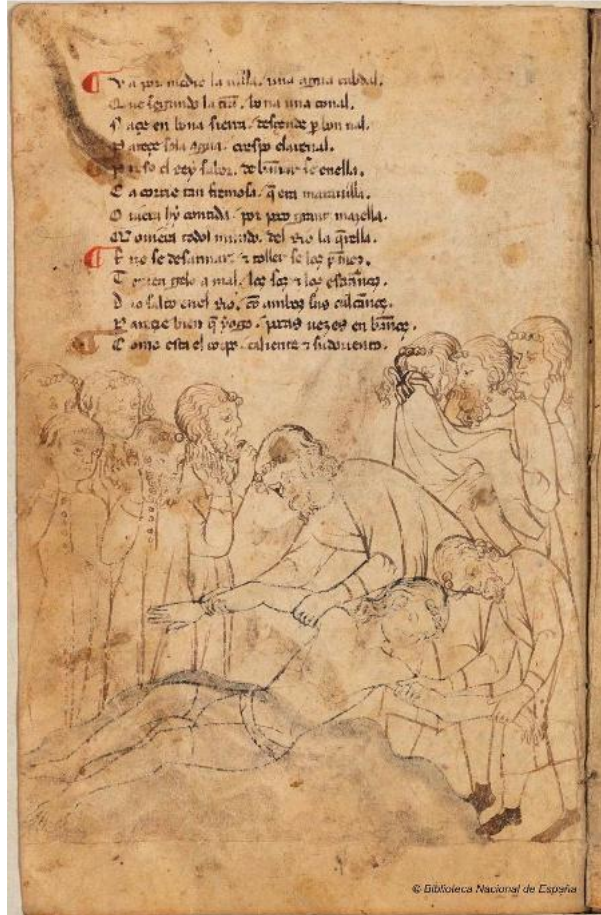 ¶ V a por medio la uilla. una agua cabdal.
Que segundo la t̃ra. buena una conal.
N açe en buena sierra. desçende por bon ual.
P areçe so la agua. crespo el arenal.
priso el rey sabor. de bannar se en ella.
C a corrie tan fermosa. q̃ era marauilla.
O uiera hy contida. por poco grant manzella.
M ouiera todol mundo. del rio la q̃rella.
¶ F uesse desarmar ⁊ toller se los pannos.
T ouieron gelo a mal. los sos ⁊ los estrannos.
D io salto en el rio. cõ ambos sus calcannos.
P areçe bien q̃ yogo. pocas uezes en bannos.
C omo esta el corpo. caliente ⁊ sudoriento.
© Biblioteca Nacional de España